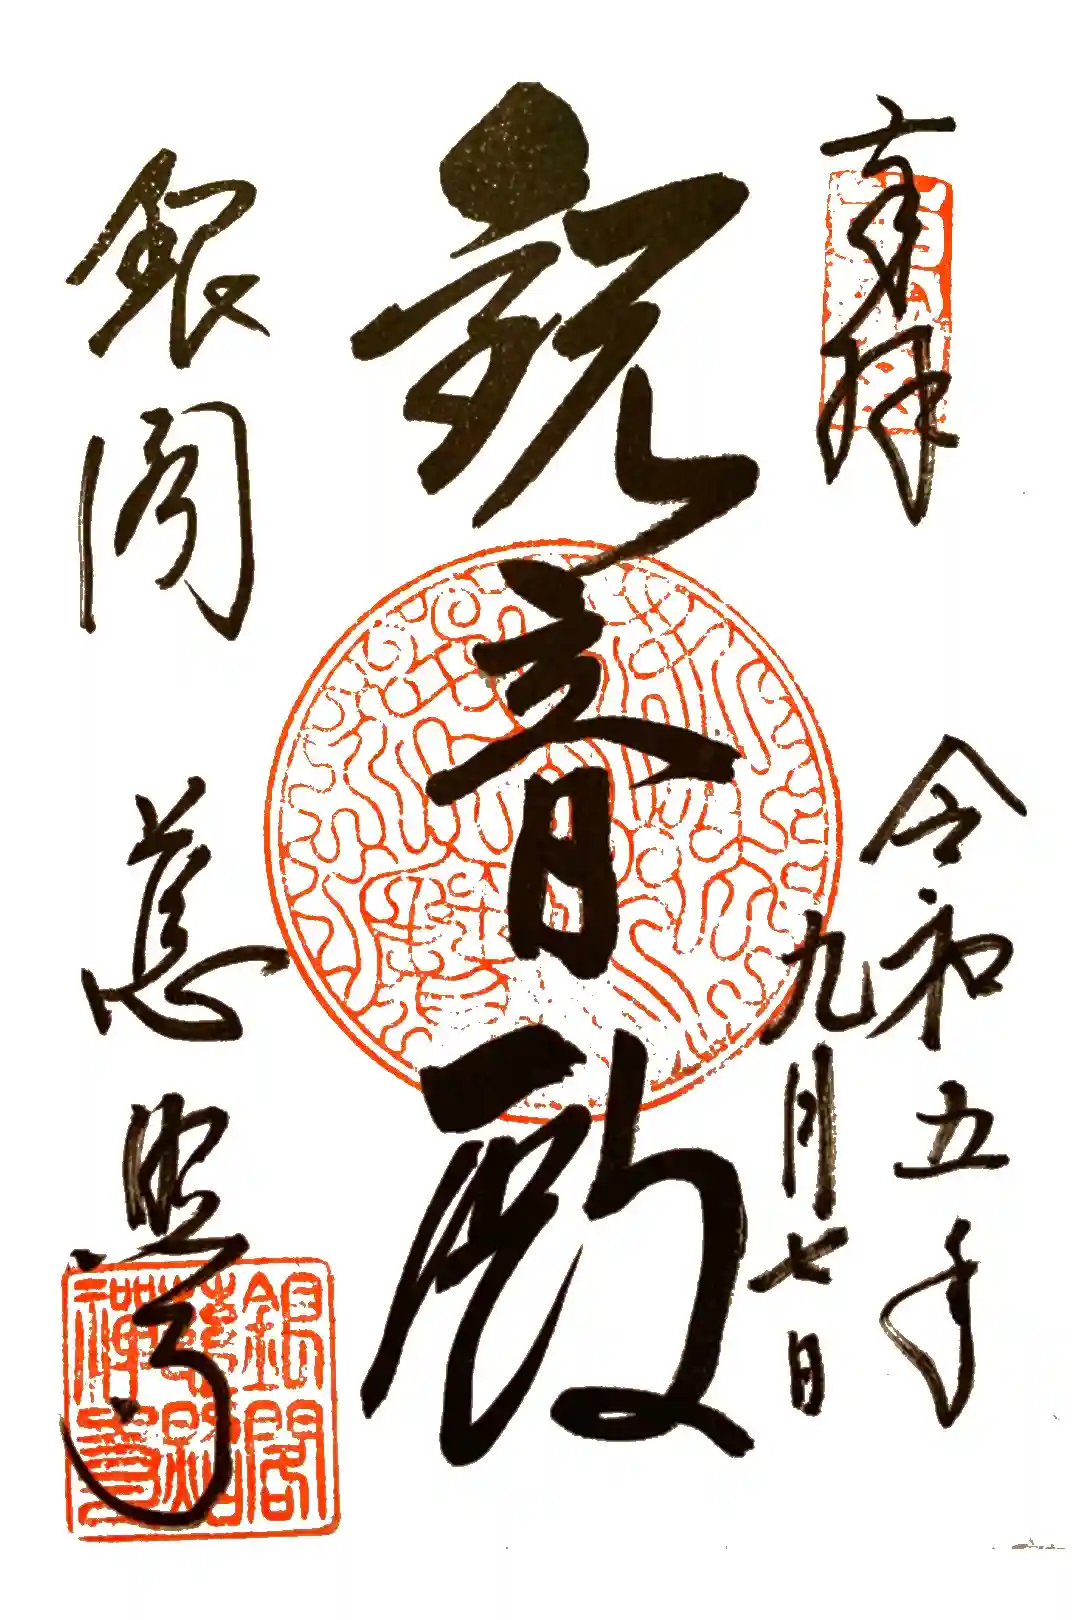 奉拝
令和五年
九月七日
観音殿
銀閣 慈照寺
銀閣
慈照
禅寺